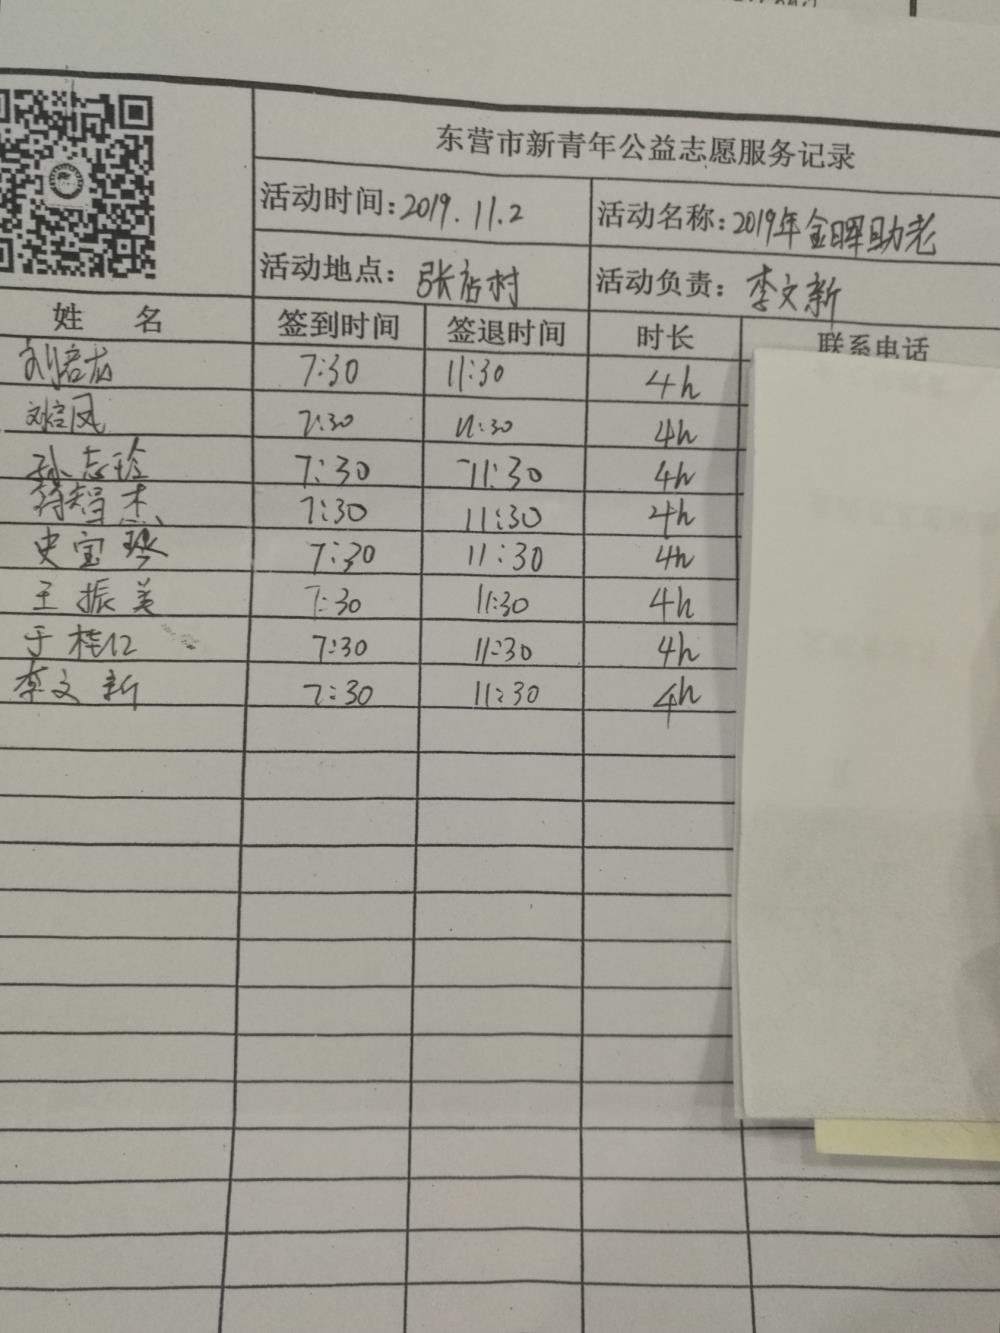 东营市新青年公益志愿服务记录
活动时间:2019.11.2 活动名称:2019年金晖助老
活动地点:张店村 活动负责:李文新
姓 名 签到时间 签退时间 时长 联系电话
刘培龙 7:30 11:30 4h
刘培凤 7:30 11:30 4h
孙志珍 7:30 11:30 4h
7:30 11:30 4h
史宝琴 7:30 11:30 4h
王振美 7:30 11:30 4h
于桂红 7:30 11:30 4h
李文新 7:30 11:30 4h